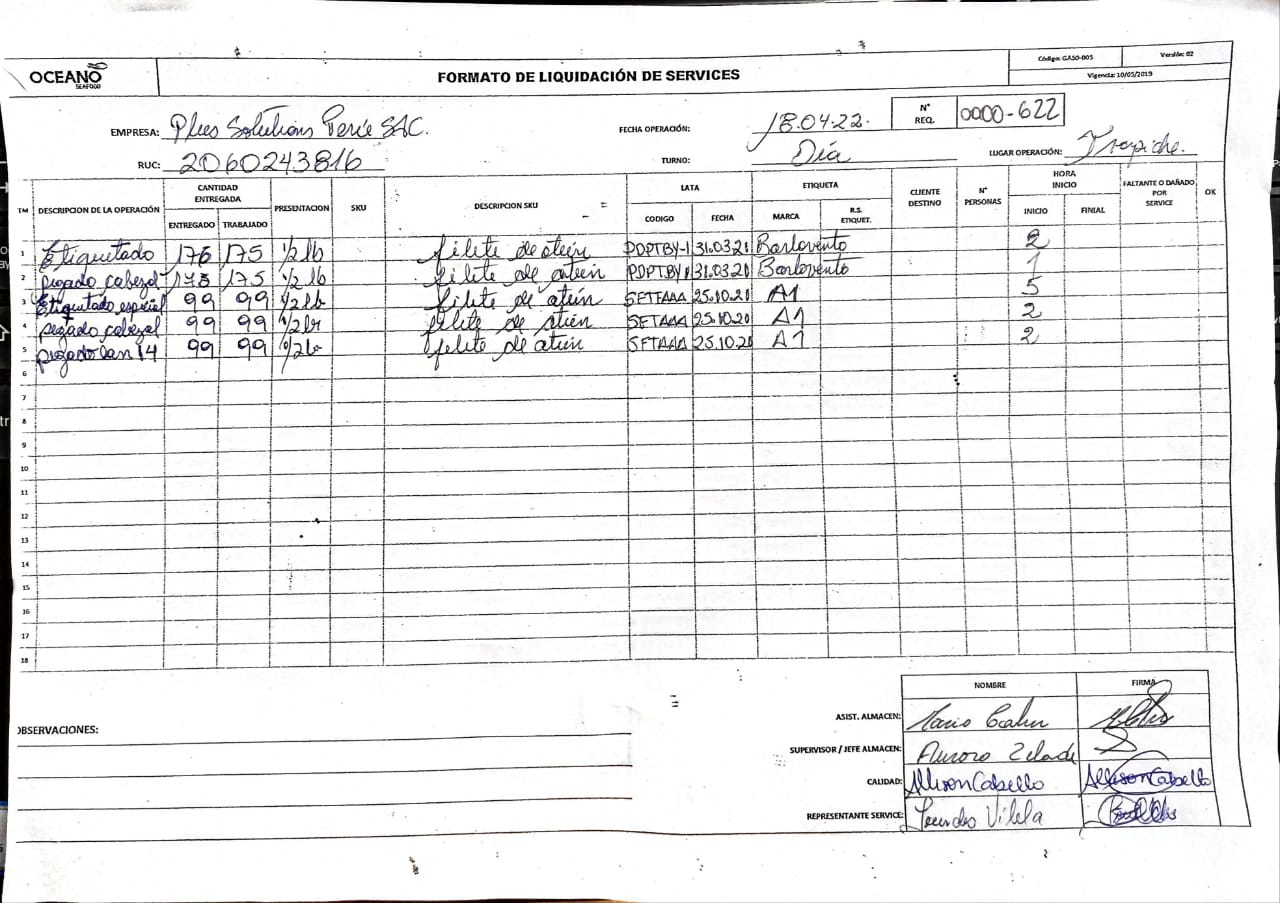 OCEANO
SEAFOOD
FORMATO DE LIQUIDACIÓN DE SERVICES
Código: GASO-005
Versión: 02
Vigencia: 10/05/2019
EMPRESA: Plus Solutions Perú SAC.
FECHA OPERACIÓN: 18.04.22.
N° REQ. 0000-622
RUC: 2060243816
TURNO: Día
LUGAR OPERACIÓN: Trapiche.
ITM DESCRIPCION DE LA OPERACIÓN CANTIDAD ENTREGADA PRESENTACION SKU DESCRIPCION SKU LATA ETIQUETA CLIENTE DESTINO N° PERSONAS HORA INICIO FALTANTE O DAÑADO POR SERVICE OK
ENTREGADO TRABAJADO CODIGO FECHA MARCA R.S. ETIQUET. INICIO FINIAL
1 Etiquetado 176 175 1/2 lb filete de atún PDPTBY-1 31.03.21 Barlovento 2
2 pegado cabezal 175 175 1/2 lb filete de atún PDPTBY 31.03.21 Barlovento 1
3 Etiquetado especial 99 99 1/2 lb filete de atún SFTFAAA 25.10.20 A1 5
4 pegado cabezal 99 99 1/2 lb filete de atún SFTAAA 25.10.20 A1 2
5 pegado 14 99 99 1/2 lb filete de atún SFTAAA 25.10.20 A1 2
6
7
8
9
10
11
12
13
14
15
16
17
18
NOMBRE FIRMA
OBSERVACIONES:
ASIST. ALMACEN: Mario
SUPERVISOR / JEFE ALMACEN: Aurora
CALIDAD: Allison Cabello Allison Cabello
REPRESENTANTE SERVICE: Lourdes Vilela